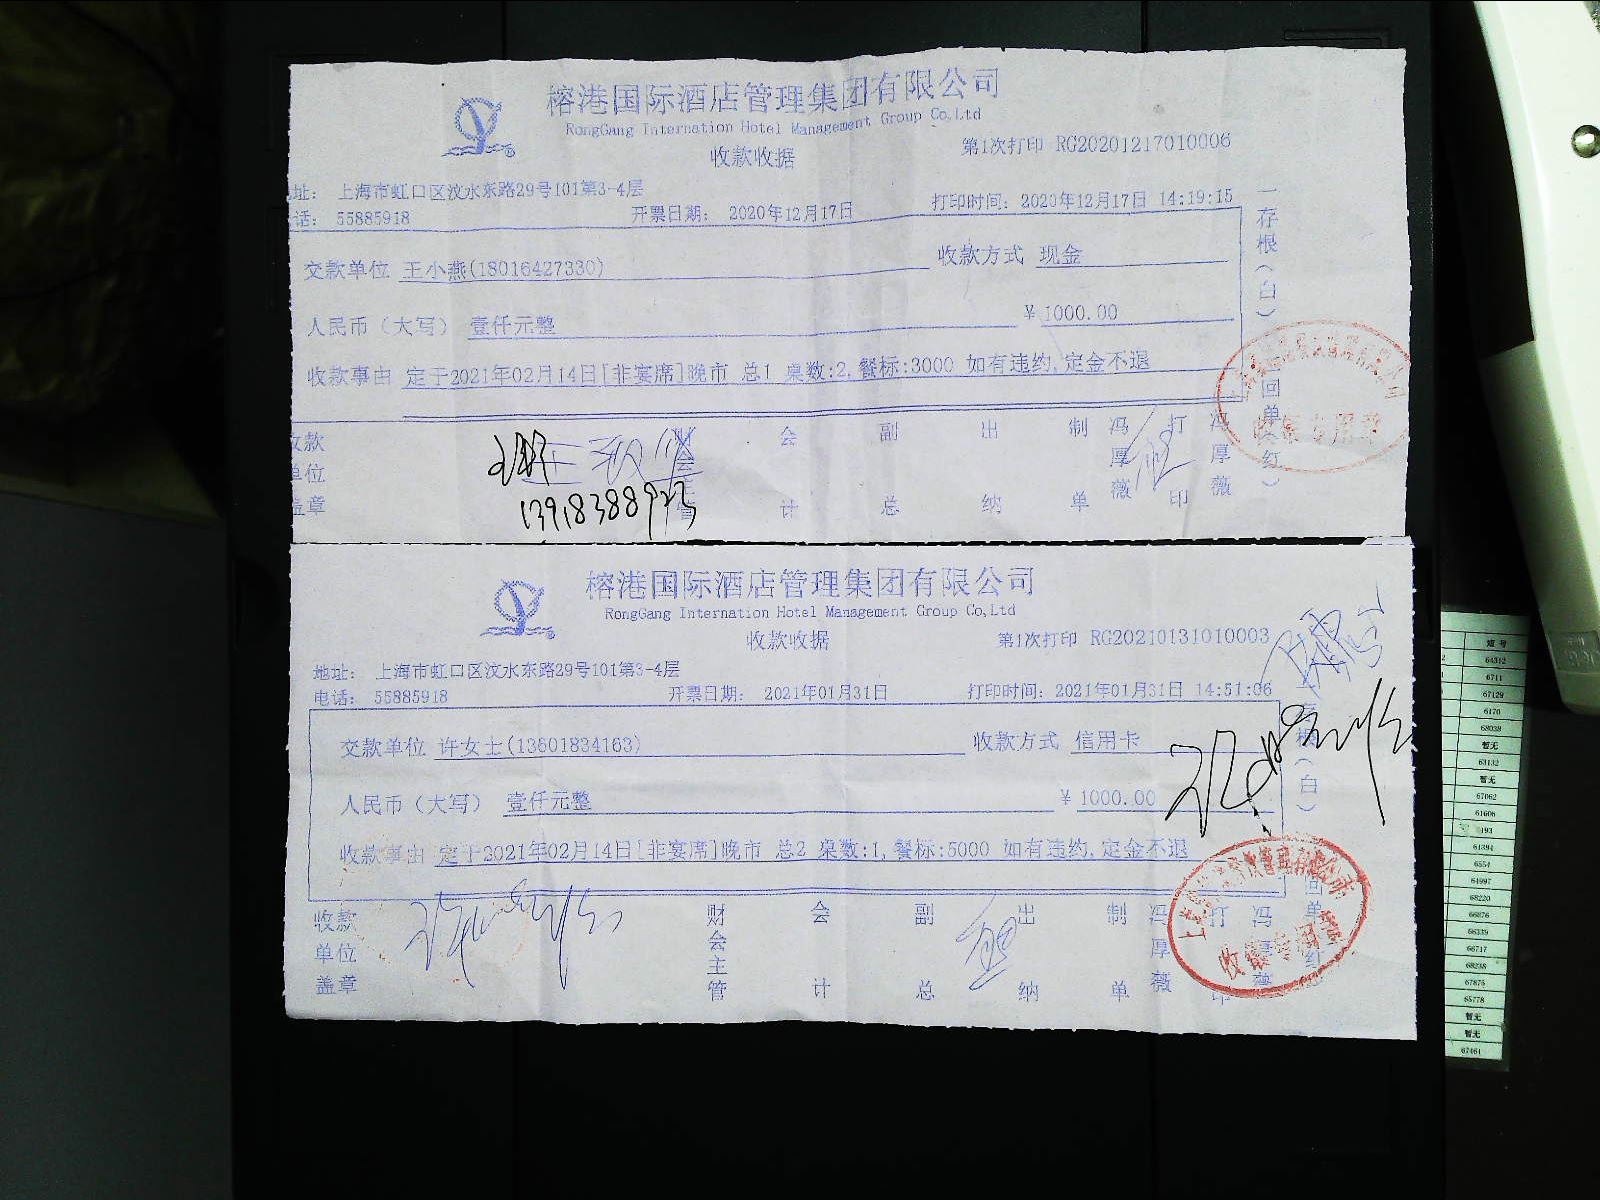 榕港国际酒店管理集团有限公司
RongGang Internation Hotel Management Group Co,Ltd
收款收据
第1次打印 RG20201217010006
址： 上海市虹口区汶水东路29号101第3-4层
话： 55885918
开票日期： 2020年12月17日
打印时间：2020年12月17日 14:19:15
交款单位 王小燕(18016427330)
收款方式 现金
人民币（大写） 壹仟元整
¥1000.00
收款事由 定于2021年02月14日[非宴席]晚市 总1 桌数:2,餐标:3000 如有违约,定金不退
收款单位盖章
财会主管
会计
副总
出纳
制单
冯厚薇
打印
冯厚薇
存根（白）
回单（红）
13918388973
榕港国际酒店管理集团有限公司
RongGang Internation Hotel Management Group Co,Ltd
收款收据
第1次打印 RG20210131010003
地址： 上海市虹口区汶水东路29号101第3-4层
电话： 55885918
开票日期： 2021年01月31日
打印时间：2021年01月31日 14:51:06
交款单位 许女士(13601834163)
收款方式 信用卡
人民币（大写） 壹仟元整
¥1000.00
收款事由 定于2021年02月14日[非宴席]晚市 总2 桌数:1,餐标:5000 如有违约,定金不退
收款单位盖章
财会主管
会计
副总
出纳
制单
冯厚薇
打印
64312
6711
67129
6170
68038
暂无
63132
暂无
67062
61606
61394
6554
64997
68220
66876
66339
66717
68238
67875
65778
暂无
暂无
67461